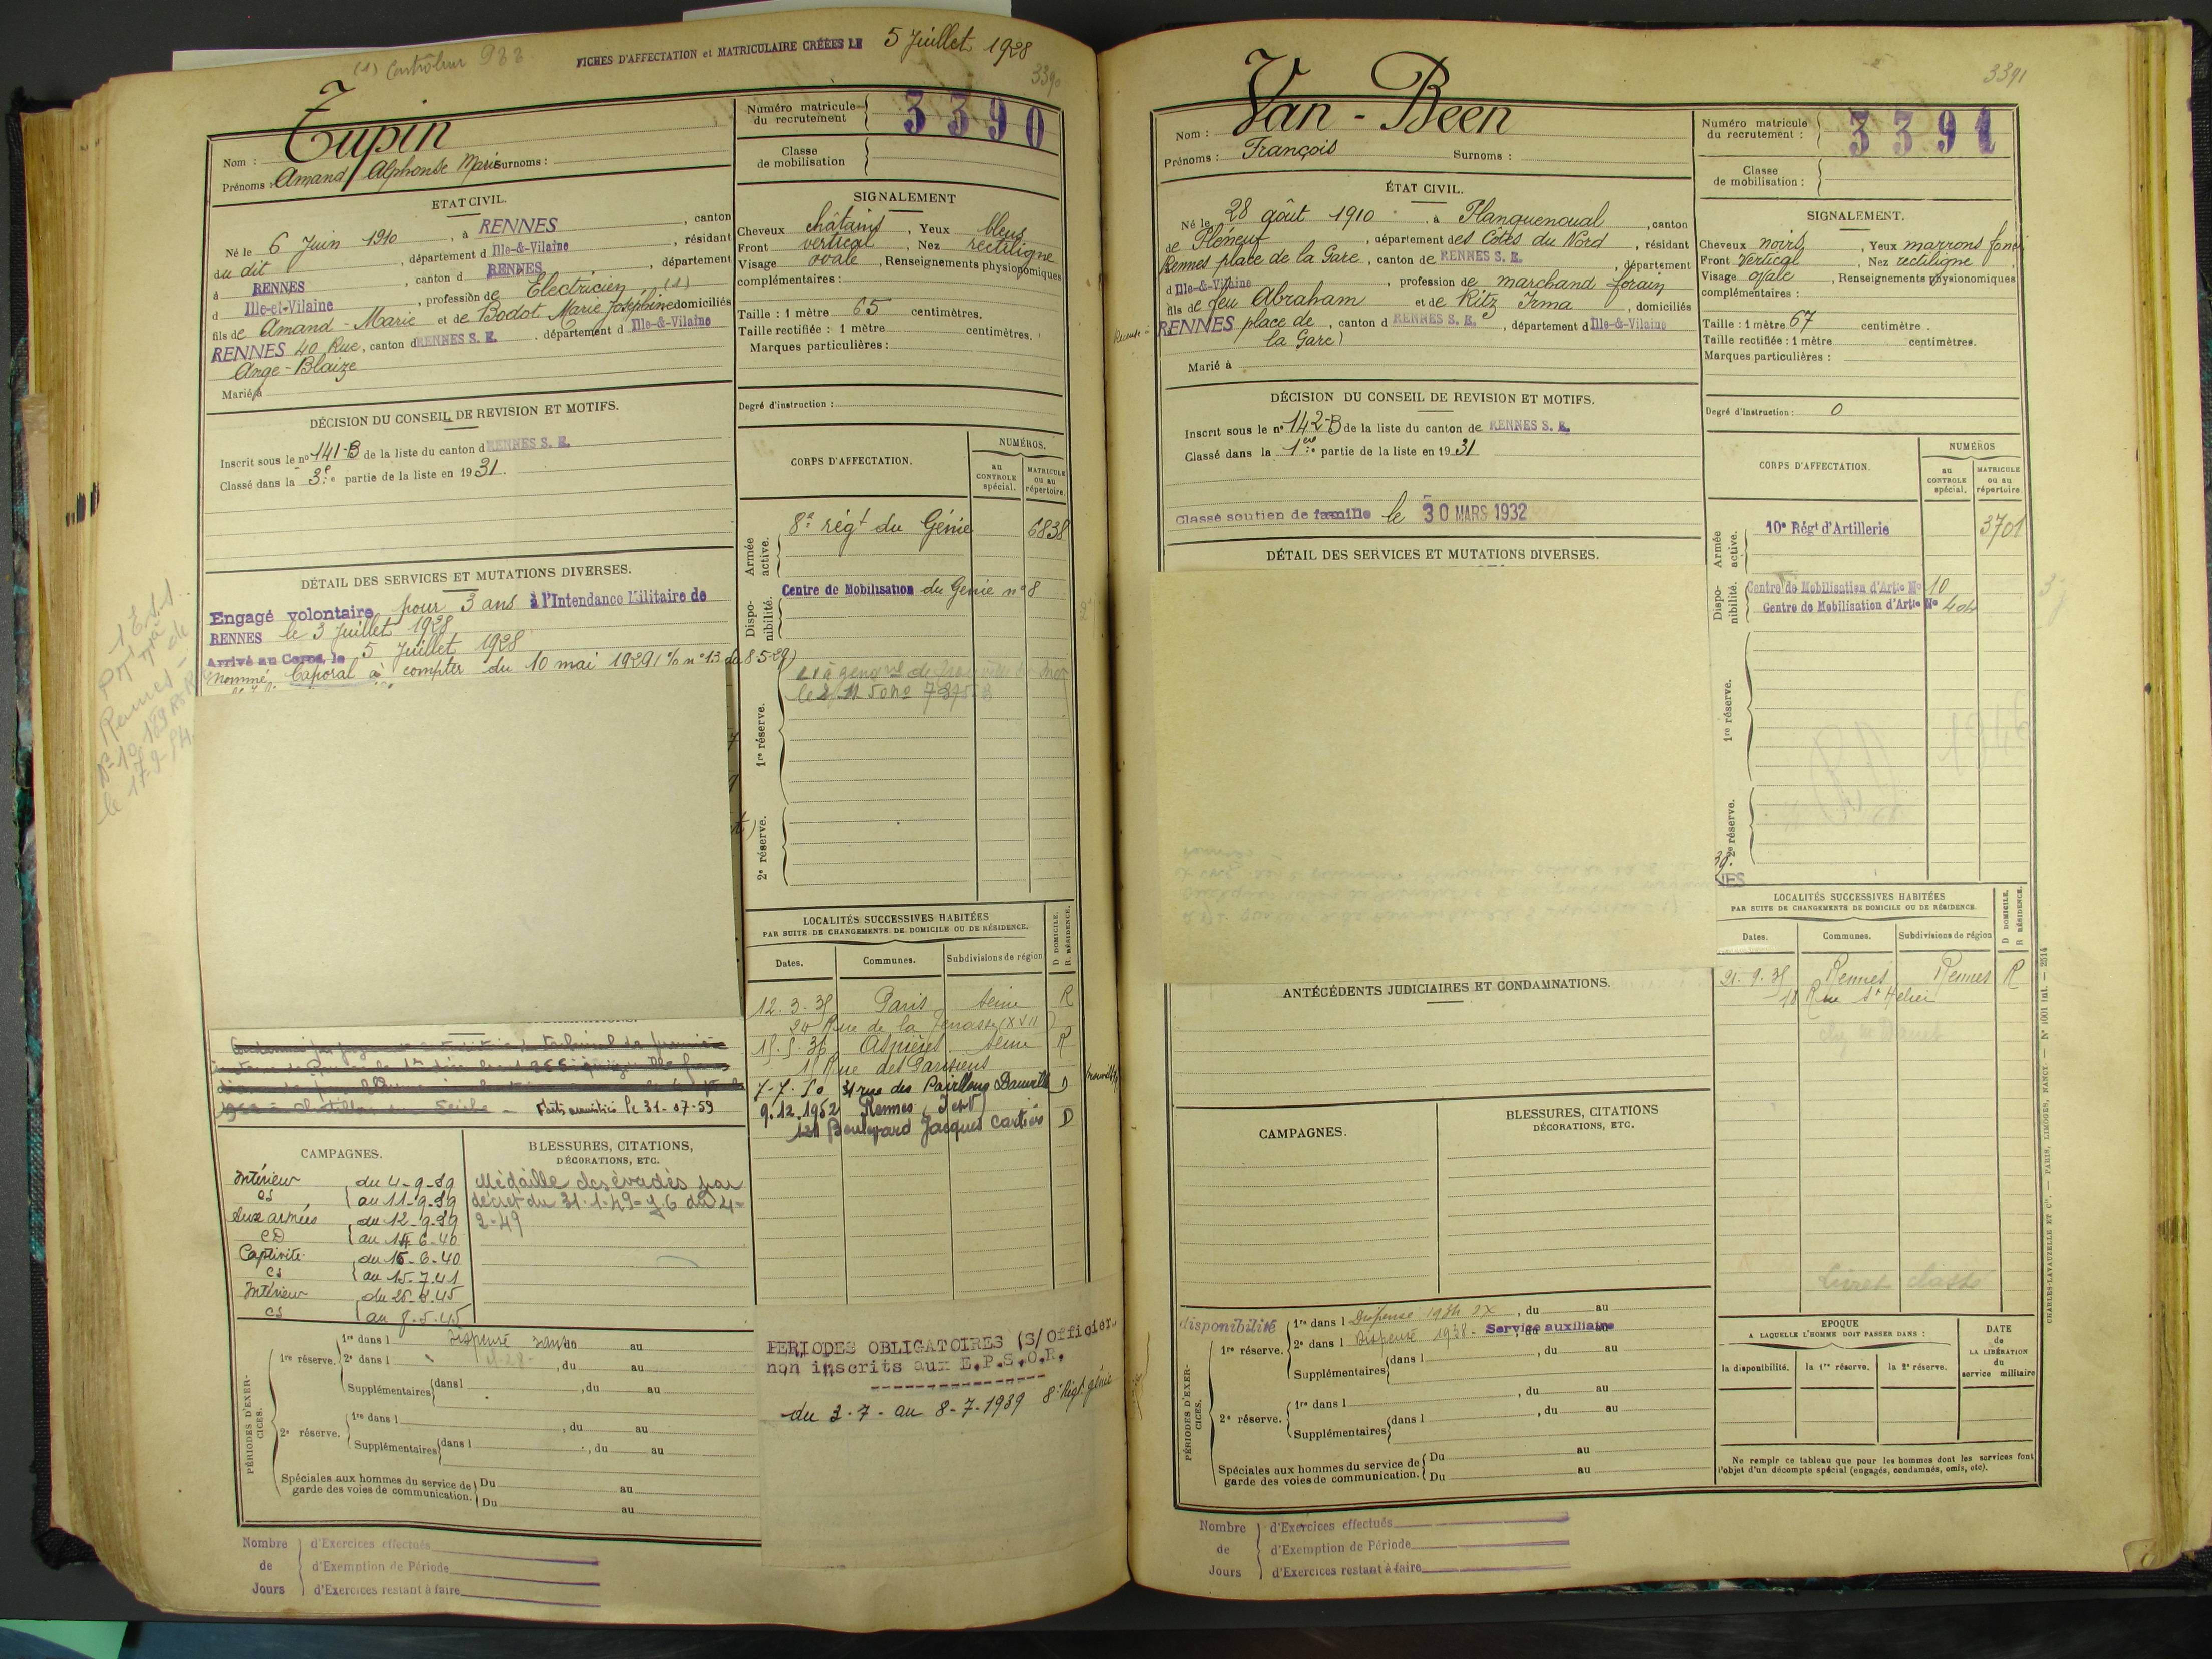 (1) Contrôleur
FICHES D'AFFECTATION et MATRICULAIRE CRÉÉES LE 5 Juillet 1928
3390
Nom : Tupin
Prénoms : Amand Alphonse Marie Surnoms :
Numéro matricule du recrutement 3390
Classe de mobilisation
ETAT CIVIL.
Né le 6 Juin 1910, à RENNES, canton
du dit, département d Ille-&-Vilaine, résidant
à RENNES, canton d RENNES, département
d Ille-et-Vilaine, profession de Electricien (1)
fils de Amand-Marie et de Bodot Marie Joséphine domiciliés
RENNES 40 Rue, canton d RENNES S. E., département d Ille-&-Vilaine
Ange-Blaize
Marié à
SIGNALEMENT
Cheveux châtains, Yeux bleus
Front vertical, Nez rectiligne
Visage ovale, Renseignements physionomiques
complémentaires :
Taille : 1 mètre 65 centimètres.
Taille rectifiée : 1 mètre centimètres.
Marques particulières :
Degré d'instruction :
DÉCISION DU CONSEIL DE REVISION ET MOTIFS.
Inscrit sous le n° 141-B de la liste du canton d RENNES S. E.
Classé dans la 3e partie de la liste en 1931.
CORPS D'AFFECTATION.
NUMÉROS.
au CONTROLE spécial.
MATRICULE ou au répertoire.
Armée active.
8e régt du Génie 6838
Disponibilité.
Centre de Mobilisation du Génie n° 8
1re réserve.
2e réserve.
DÉTAIL DES SERVICES ET MUTATIONS DIVERSES.
Engagé volontaire pour 3 ans à l'Intendance Militaire de
RENNES le 3 Juillet 1928
Arrivé au Corps, le 5 Juillet 1928
Nommé Caporal à compter du 10 mai 1929 (% n° 13 du 8 5-29)
LOCALITÉS SUCCESSIVES HABITÉES
PAR SUITE DE CHANGEMENTS DE DOMICILE OU DE RÉSIDENCE.
Dates. Communes. Subdivisions de région
D DOMICILE.
R. RÉSIDENCE.
12.3.35 Paris Seine R
Rue de la
15.5.36 Asnières Seine R
15 Rue des Parisiens
7-7-50 rue des D
9.12.1952 Rennes (I et V)
121 Boulevard Jacques Cartier D
Faits amnistiés le 31-07-59
CAMPAGNES.
Intérieur du 4-9-39
CS au 11-9-39
Aux armées du 12-9-39
CD au 14-6-40
Captivité du 15-6-40
CS au 15-7-41
Intérieur du
CS au 8-5-45
BLESSURES, CITATIONS,
DÉCORATIONS, ETC.
Médaille des évadés par
décret du 31-1-49
2-49
PÉRIODES D'EXERCICES.
1re réserve.
1re dans l Dispensé au
2e dans l , du au
Supplémentaires dans l , du au
2e réserve.
1re dans l , du au
Supplémentaires dans l , du au
Spéciales aux hommes du service de garde des voies de communication.
Du au
Du au
PERIODES OBLIGATOIRES (S/Officier.
non inscrits aux E.P.S.O.R.
du 3-7- au 8-7-1939 8e Régt génie
Nombre de Jours
d'Exercices effectués
d'Exemption de Période
d'Exercices restant à faire
3391
Nom : Van-Been
Prénoms : François Surnoms :
Numéro matricule du recrutement : 3391
Classe de mobilisation :
ÉTAT CIVIL.
Né le 28 août 1910 à Planguenoual, canton
de Pléneuf, département des Côtes du Nord, résidant
Rennes place de la Gare, canton de RENNES S. E., département
d Ille-&-Vilaine, profession de marchand forain
fils de feu Abraham et de Ritz Irma, domiciliés
RENNES place de, canton d RENNES S. E., département d Ille-&-Vilaine
la Gare
Marié à
SIGNALEMENT.
Cheveux noirs, Yeux marrons foncé
Front vertical, Nez rectiligne
Visage ovale, Renseignements physionomiques
complémentaires :
Taille : 1 mètre 67 centimètre.
Taille rectifiée : 1 mètre centimètres.
Marques particulières :
Degré d'instruction : 0
DÉCISION DU CONSEIL DE REVISION ET MOTIFS.
Inscrit sous le n° 142-B de la liste du canton de RENNES S. E.
Classé dans la 1ere partie de la liste en 1931
Classé soutien de famille le 30 MARS 1932
CORPS D'AFFECTATION.
NUMÉROS
au CONTROLE spécial.
MATRICULE ou au répertoire
Armée active.
10e Régt d'Artillerie 3701
Disponibilité.
Centre de Mobilisation d'Artie N° 10
Centre de Mobilisation d'Artie N° 404
1re réserve.
2e réserve.
DÉTAIL DES SERVICES ET MUTATIONS DIVERSES.
LOCALITÉS SUCCESSIVES HABITÉES
PAR SUITE DE CHANGEMENTS DE DOMICILE OU DE RÉSIDENCE
Dates. Communes. Subdivisions de région
D DOMICILE.
R RÉSIDENCE.
21.9.35 Rennes Rennes R
18 Rue St Hélier
ANTÉCÉDENTS JUDICIAIRES ET CONDAMNATIONS.
CAMPAGNES.
BLESSURES, CITATIONS
DÉCORATIONS, ETC.
Livret classé
PÉRIODES D'EXERCICES.
disponibilité
1re réserve.
1re dans l Dispensé 1934, du au
2e dans l Dispensé 1938- Service auxiliaire
Supplémentaires dans l , du au
, du au
2e réserve.
1re dans l
Supplémentaires dans l , du au
Spéciales aux hommes du service de garde des voies de communication.
Du au
Du au
EPOQUE
A LAQUELLE L'HOMME DOIT PASSER DANS :
la disponibilité. la 1re réserve. la 2e réserve.
DATE de LA LIBÉRATION du service militaire
Ne remplir ce tableau que pour les hommes dont les services font
l'objet d'un décompte spécial (engagés, condamnés, omis, etc).
CHARLES-LAVAUZELLE ET Cie. — PARIS, LIMOGES, NANCY. — N° 1001 int. — 2514
Nombre de Jours
d'Exercices effectués
d'Exemption de Période
d'Exercices restant à faire